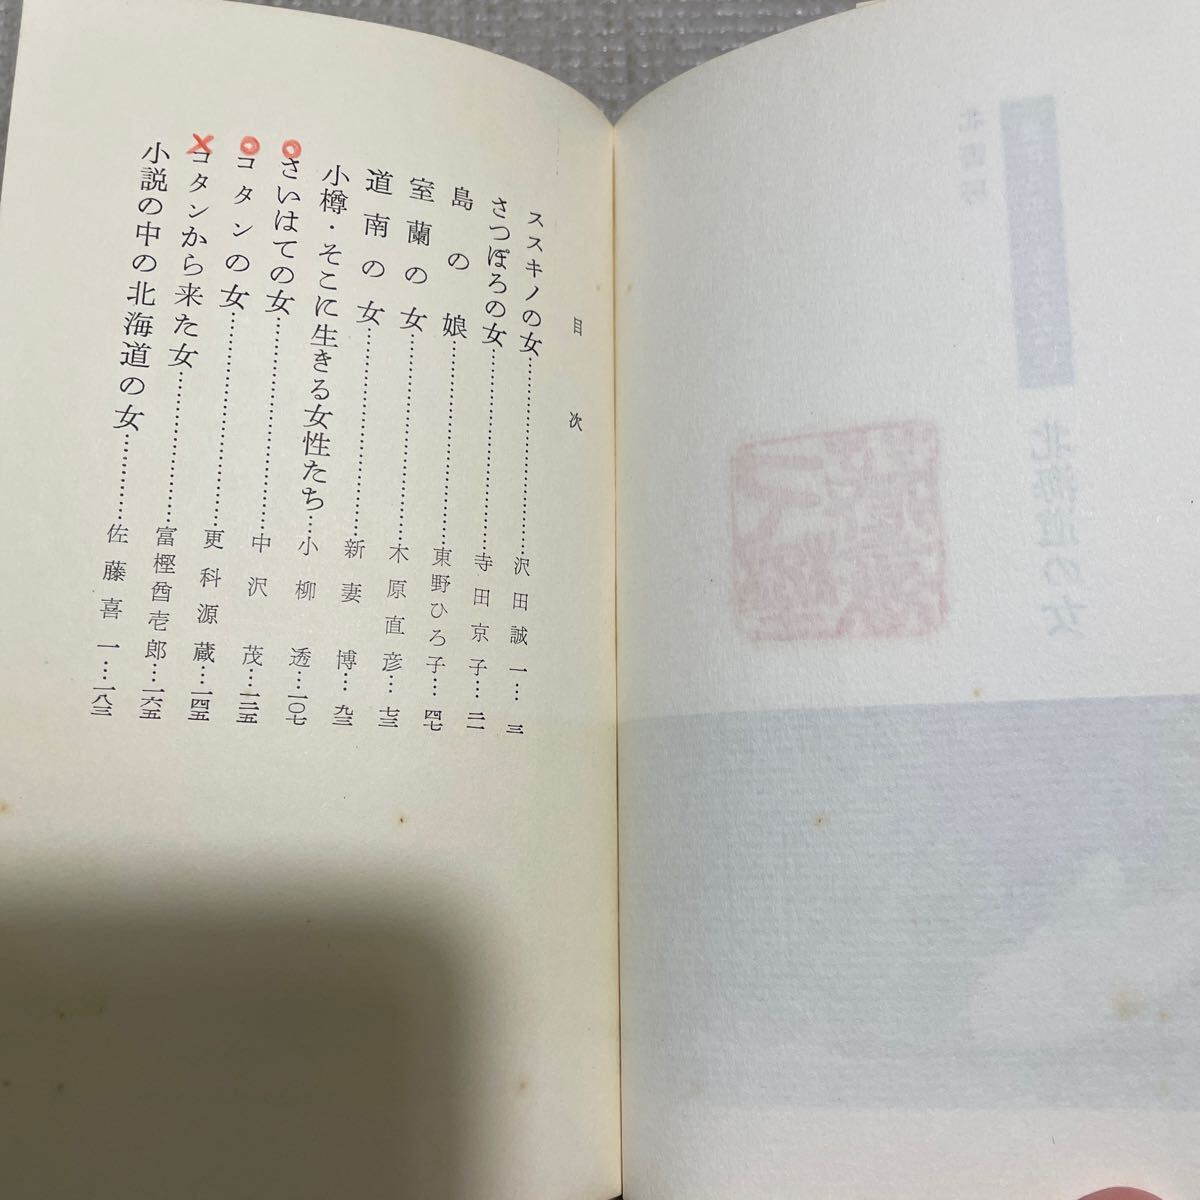 北書房
北海道の女
目次
ススキノの女……沢田誠一…三
さつぽろの女……寺田京子…二一
島の娘……東野ひろ子…四七
室蘭の女……木原直彦…七三
道南の女……新妻博…九三
小樽・そこに生きる女性たち…小柳透…一〇七
さいはての女……中沢茂…一二五
コタンの女……更科源蔵…一四五
コタンから来た女……富樫酋壱郎…一六五
小説の中の北海道の女……佐藤喜一…一八三